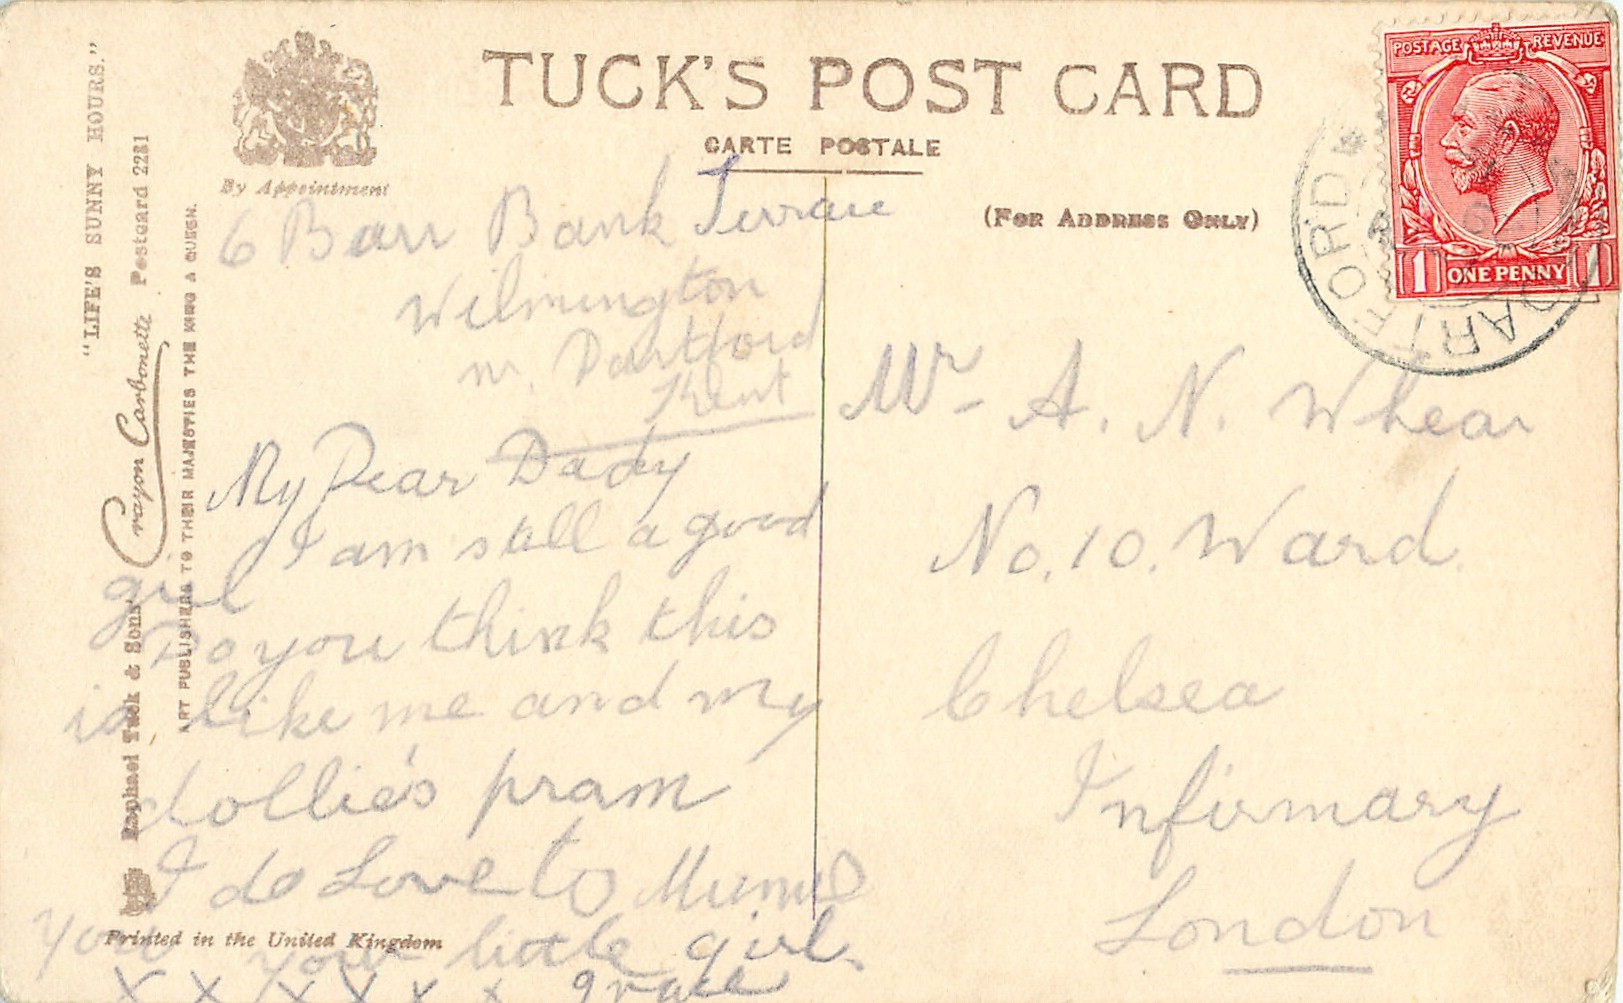 TUCK'S POST CARD
CARTE POSTALE
(FOR ADDRESS ONLY)
By Appointment
"LIFE'S SUNNY HOURS."
Crayon Carbonette Postcard 2281
Raphael Tuck & Sons'
ART PUBLISHERS TO THEIR MAJESTIES THE KING & QUEEN.
Printed in the United Kingdom
POSTAGE REVENUE
1 ONE PENNY 1
DARTFORD
6 Barr Bank Terrace
Wilmington
nr. Dartford
Kent
My Dear Dady
I am still a good
girl
Do you think this
is like me and my
dollie's pram
I do Love to Mum
You your little girl
x x x x x x grace
Mr A. N. Whear
No. 10. Ward
Chelsea
Infirmary
London